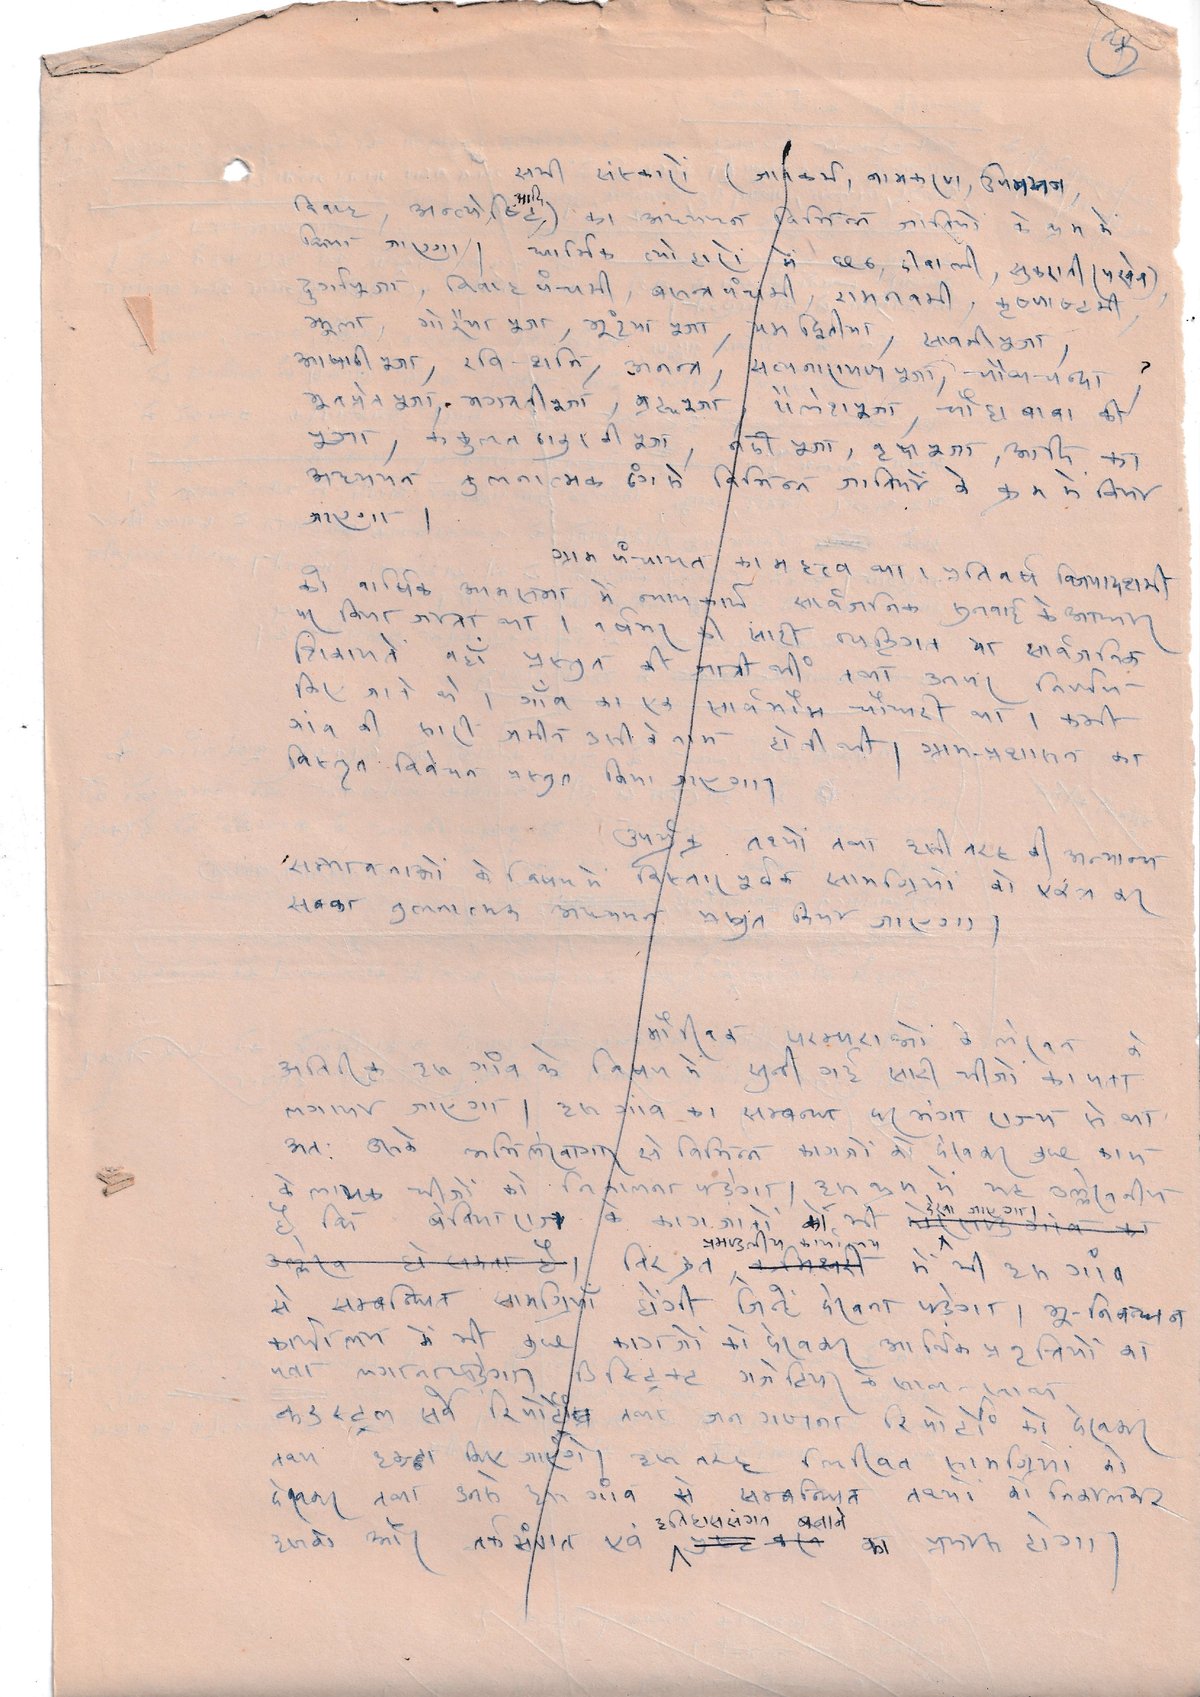 सभी संस्कारों ( जातकर्म, नामकरण, उपनयन,
विवाह, अन्त्येष्टि आदि) का अध्ययन विभिन्न जातियों के क्रम में
किया जाएगा। धार्मिक त्योहारों में छठ, दीवाली, सुकराती (पखेव),
दुर्गापूजा, विवाह पँचमी, बसन्त पँचमी, रामनवमी, कृष्णाष्टमी,
झूला, गोरैया पूजा, भूइँया पूजा, यम द्वितीया, सावनी पूजा,
आषाढी पूजा, रवि-शनि, अनन्त, सत्यनारायण पूजा, चौथ-चन्दा,
भूतप्रेत पूजा, भगवती पूजा, ब्रह्म पूजा, पूजा, बाबा की
पूजा, ठाकुर की पूजा, नदी पूजा, वृक्ष पूजा, आदि का
अध्ययन तुलनात्मक ढँग से विभिन्न जातियों के क्रम में किया
जाएगा।
ग्राम पँचायत का महत्व था। प्रतिवर्ष विजयादशमी
की वार्षिक आमसभा में न्याय कार्य सार्वजनिक सुनवाई के आधार
पर किया जाता था। की सारी व्यक्तिगत या सार्वजनिक
शिकायतें वहाँ प्रस्तुत की जाती थीं तथा उनपर निर्णय
किए जाते थे। गाँव का एक सार्वभौम चौधरी था। कभी
गांव की सारी जमीन उसी के नाम होती थी। ग्राम-प्रशासन का
विस्तृत विवेचन प्रस्तुत किया जाएगा।
उपर्युक्त तथ्यों तथा इसी तरह की अन्यान्य
सम्भावनाओं के विषय में विस्तार पूर्वक सामग्रियों को एकत्र कर
सबका तुलनात्मक अध्ययन प्रस्तुत किया जाएगा।
मौखिक परम्पराओं के लेखन के
अतिरिक्त इस गाँव के विषय में सुनी गई सारी चीजों का पता
लगाया जाएगा। इस गांव का सम्बन्ध दरभंगा राज्य से था
अत: उसके अभिलेखागार से विभिन्न कागजों को देखकर कुछ काम
के लायक चीजों को निकालना पड़ेगा। इस क्रम में यह उल्लेखनीय
है कि बेतिया राज के कागजातों को भी देखा जाएगा।
उल्लेख हो सकता है। विस्तृत, प्रमण्डलीय कार्यालय में भी इस गाँव
से सम्बन्धित सामग्रियाँ होंगी जिन्हें देखना पड़ेगा। भू-निबन्धन
कार्यालय में भी कुछ कागजों को देखकर आर्थिक प्रवृत्तियों का
पता लगाना पड़ेगा। डिस्ट्रिक्ट गजेटियर के साथ-साथ
कडस्ट्रल सर्वे रिपोर्ट तथा जन गणना रिपोर्टों को देखकर
तथ्य इकट्ठा किए जाएँगे। इस तरह लिखित सामग्रियों को
देखकर तथा उनसे इस गाँव से सम्बन्धित तथ्यों को निकालकर
इसको और तर्कसंगत एवं इतिहाससंगत बनाने का प्रयास होगा।